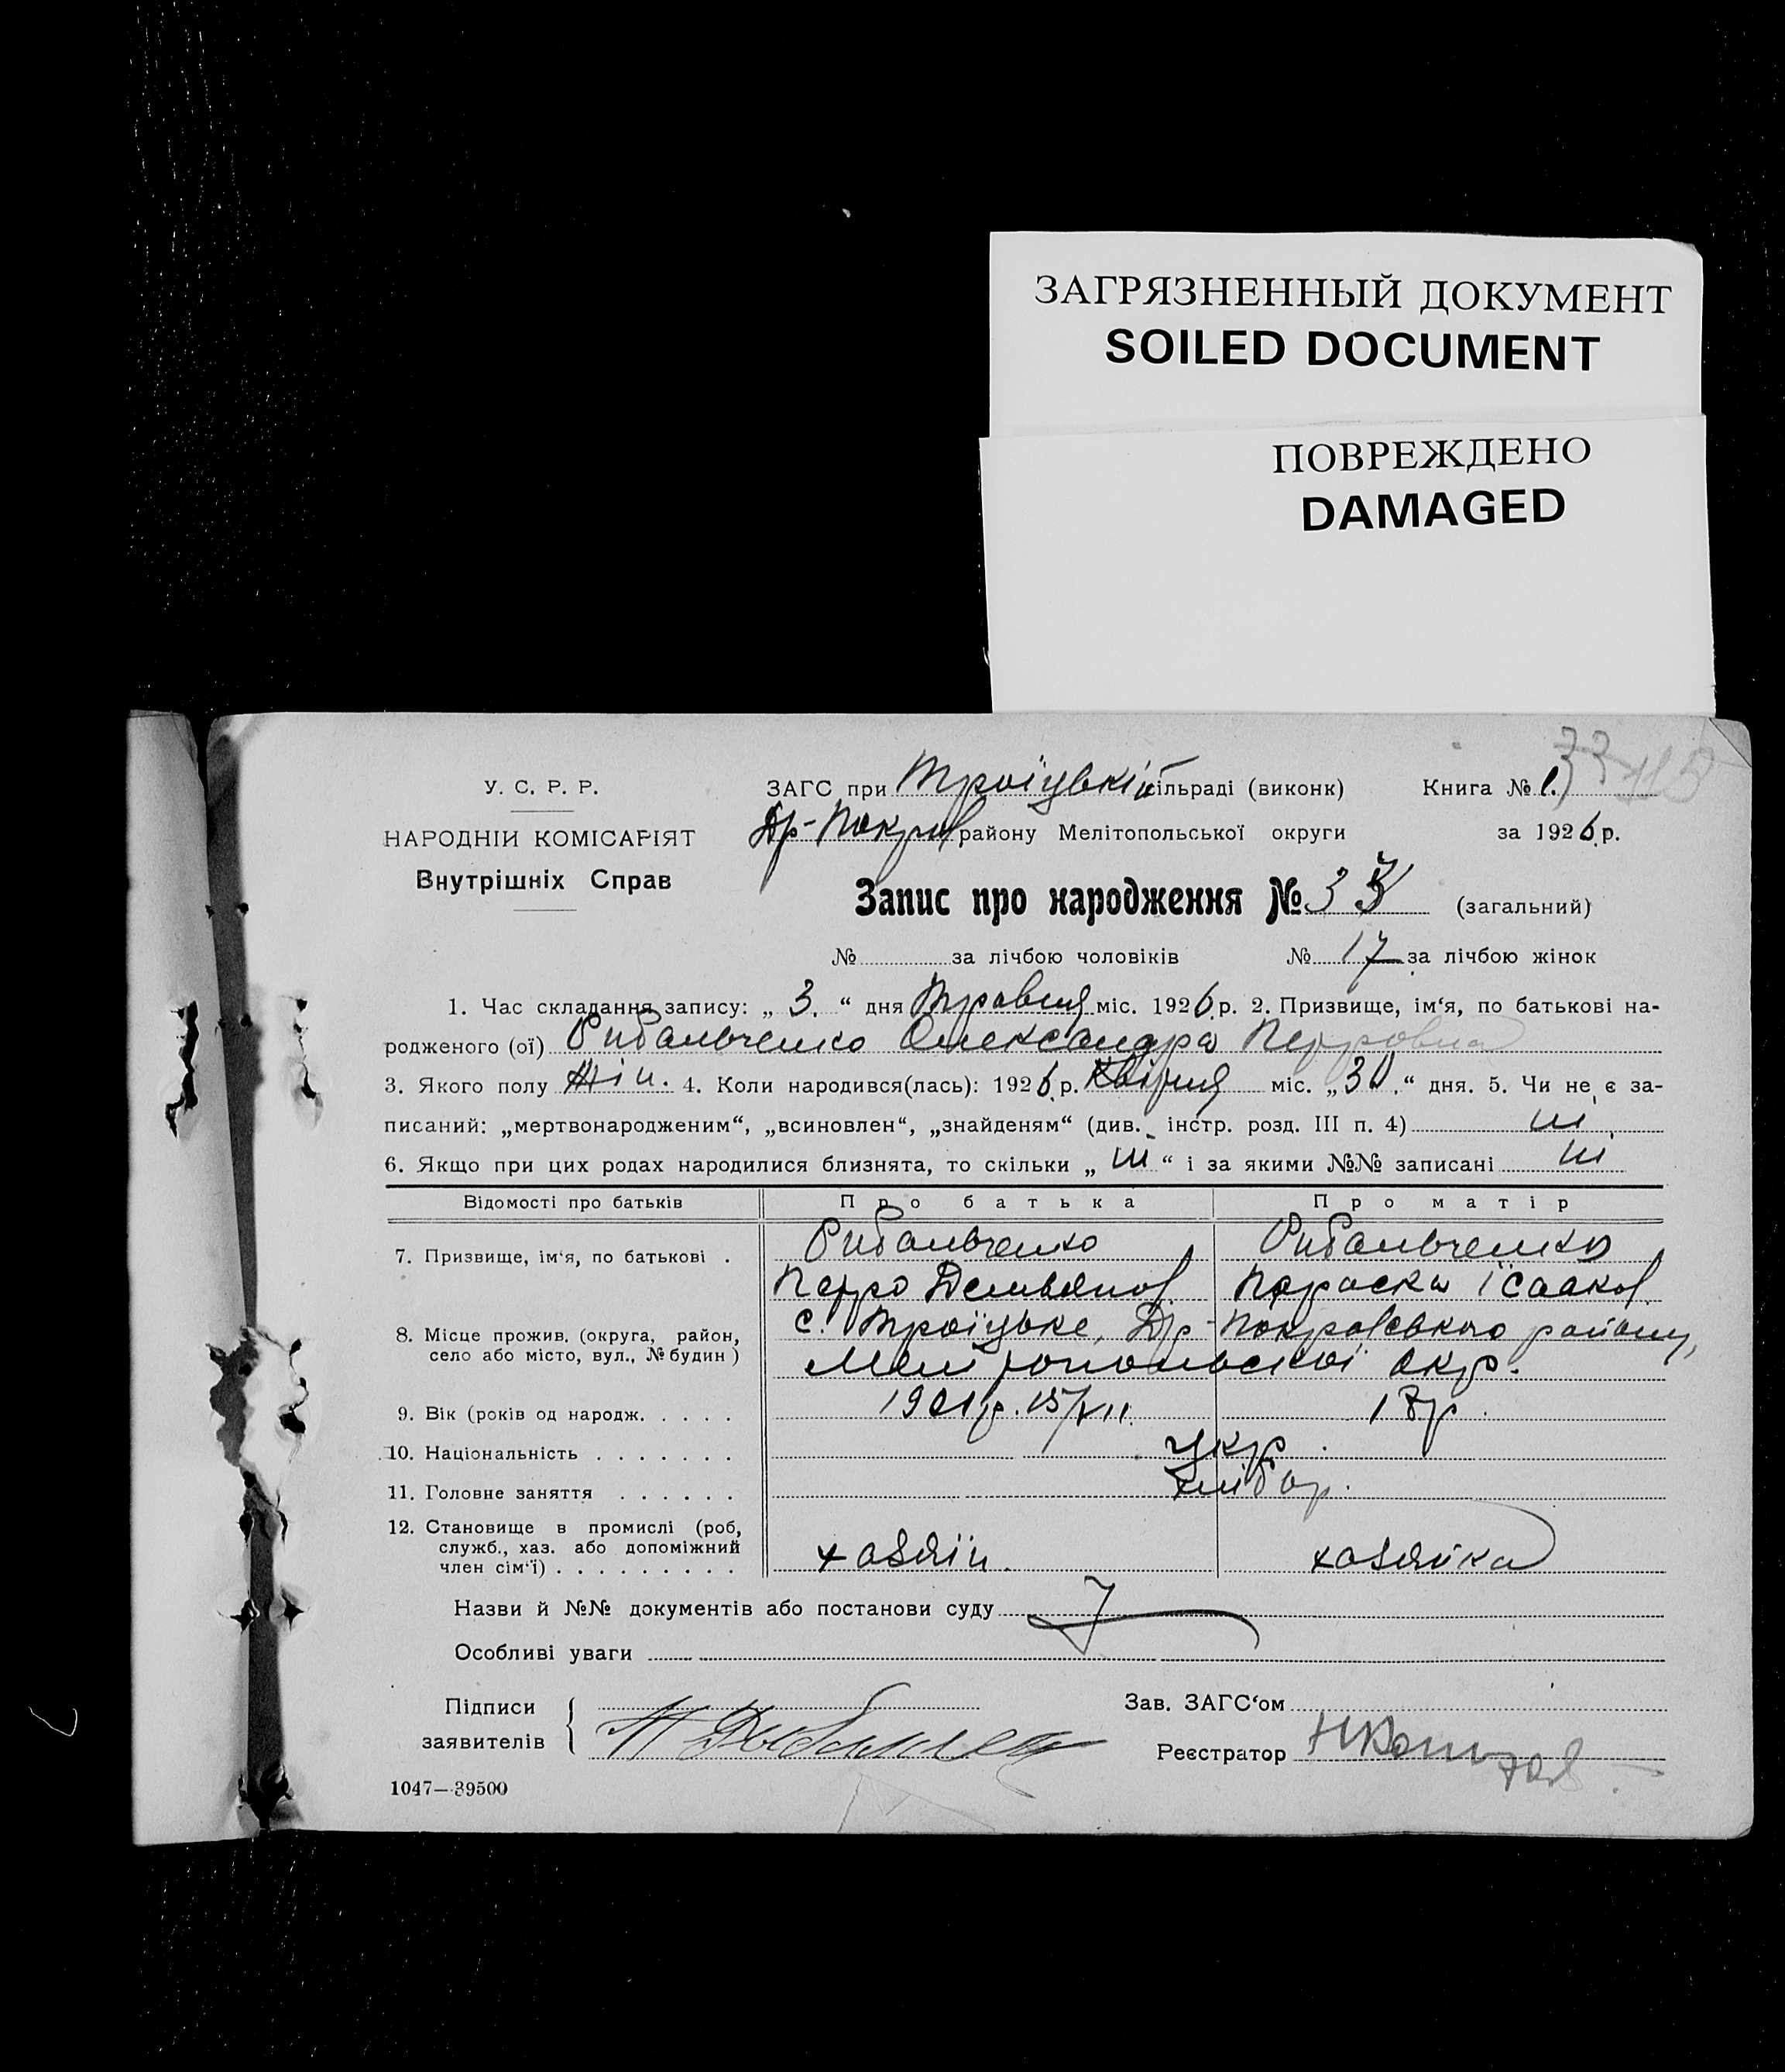 ЗАГРЯЗНЕННЫЙ ДОКУМЕНТ
SOILED DOCUMENT
ПОВРЕЖДЕНО
DAMAGED
У. С. Р. Р.
НАРОДНІЙ КОМІСАРІЯТ
Внутрішніх Справ
ЗАГС при Троїцькій сільраді (виконк) Книга № 1.
Др-Покров району Мелітопольської округи за 1926 р.
Запис про народження № 3 (загальний)
№ за лічбою чоловіків № 17 за лічбою жінок
1. Час складання запису: „ 3. “ дня Травня міс. 1926 р. 2. Призвище, ім‘я, по батькові на-
родженого (ої) Рибальченко Олександра Петровна
3. Якого полу жін. 4. Коли народився(лась): 1926 р. Квітня міс. „30.“ дня. 5. Чи не є за-
писаний: „мертвонародженим“, „всиновлен“, „знайденям“ (див. інстр. розд. III п. 4) ні
6. Якщо при цих родах народилися близнята, то скільки „ ні “ і за якими №№ записані ні
Відомості про батьків Про батька Про матір
7. Призвище, ім‘я, по батькові . Рибальченко Рибальченко
Петро Демьянов Параска Ісааков.
8. Місце прожив. (округа, район, село або місто, вул., № будин ) с. Троїцьке, Др-Покровського району,
Мелітопольської окр.
9. Вік (років од народж. . . . . 1901 р. 15/VII. 18 р.
10. Національність . . . . . . . укр.
11. Головне заняття . . . . . . хлібор.
12. Становище в промислі (роб, служб., хаз. або допоміжний член сім‘ї) . . . . . . . . . хазяїн. хазяйка
Назви й №№ документів або постанови суду
Особливі уваги
Підписи заявителів
Зав. ЗАГС‘ом
Реєстратор
1047—39500